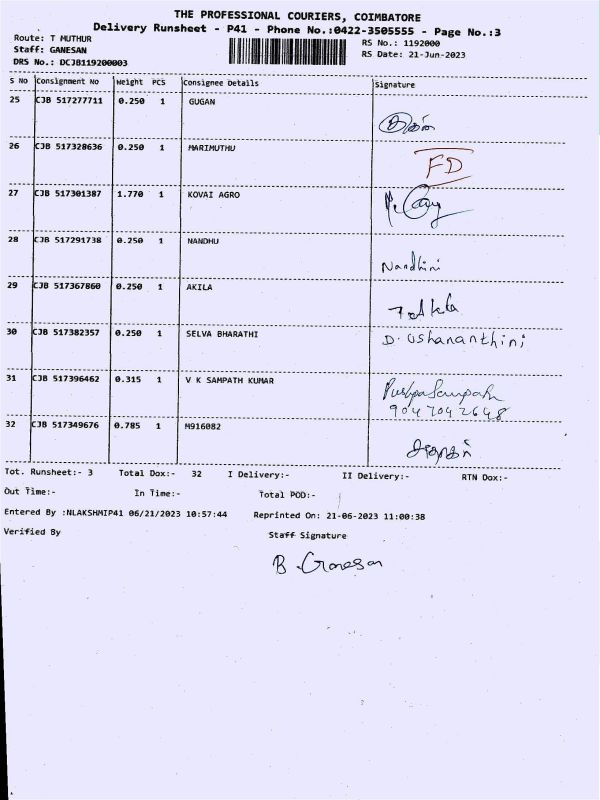 THE PROFESSIONAL COURIERS, COIMBATORE
Delivery Runsheet - P41 - Phone No.:0422-3505555 - Page No.:3
Route: T MUTHUR RS No.: 1192000
Staff: GANESAN RS Date: 21-Jun-2023
DRS No.: DCJB119200003
S No Consignment No Weight PCS Consignee Details Signature
25 CJB 517277711 0.250 1 GUGAN
26 CJB 517328636 0.250 1 MARIMUTHU
FD
27 CJB 517301387 1.770 1 KOVAI AGRO
28 CJB 517291738 0.250 1 NANDHU
Nandhini
29 CJB 517367860 0.250 1 AKILA
30 CJB 517382357 0.250 1 SELVA BHARATHI D. Ushananthini
31 CJB 517396462 0.315 1 V K SAMPATH KUMAR Pushpa Sampath
9047042648
32 CJB 517349676 0.785 1 M916082
Tot. Runsheet:- 3 Total Dox:- 32 I Delivery:- II Delivery:- RTN Dox:-
Out Time:- In Time:- Total POD:-
Entered By :NLAKSHMIP41 06/21/2023 10:57:44 Reprinted On: 21-06-2023 11:00:38
Verified By Staff Signature
B. Ganesan